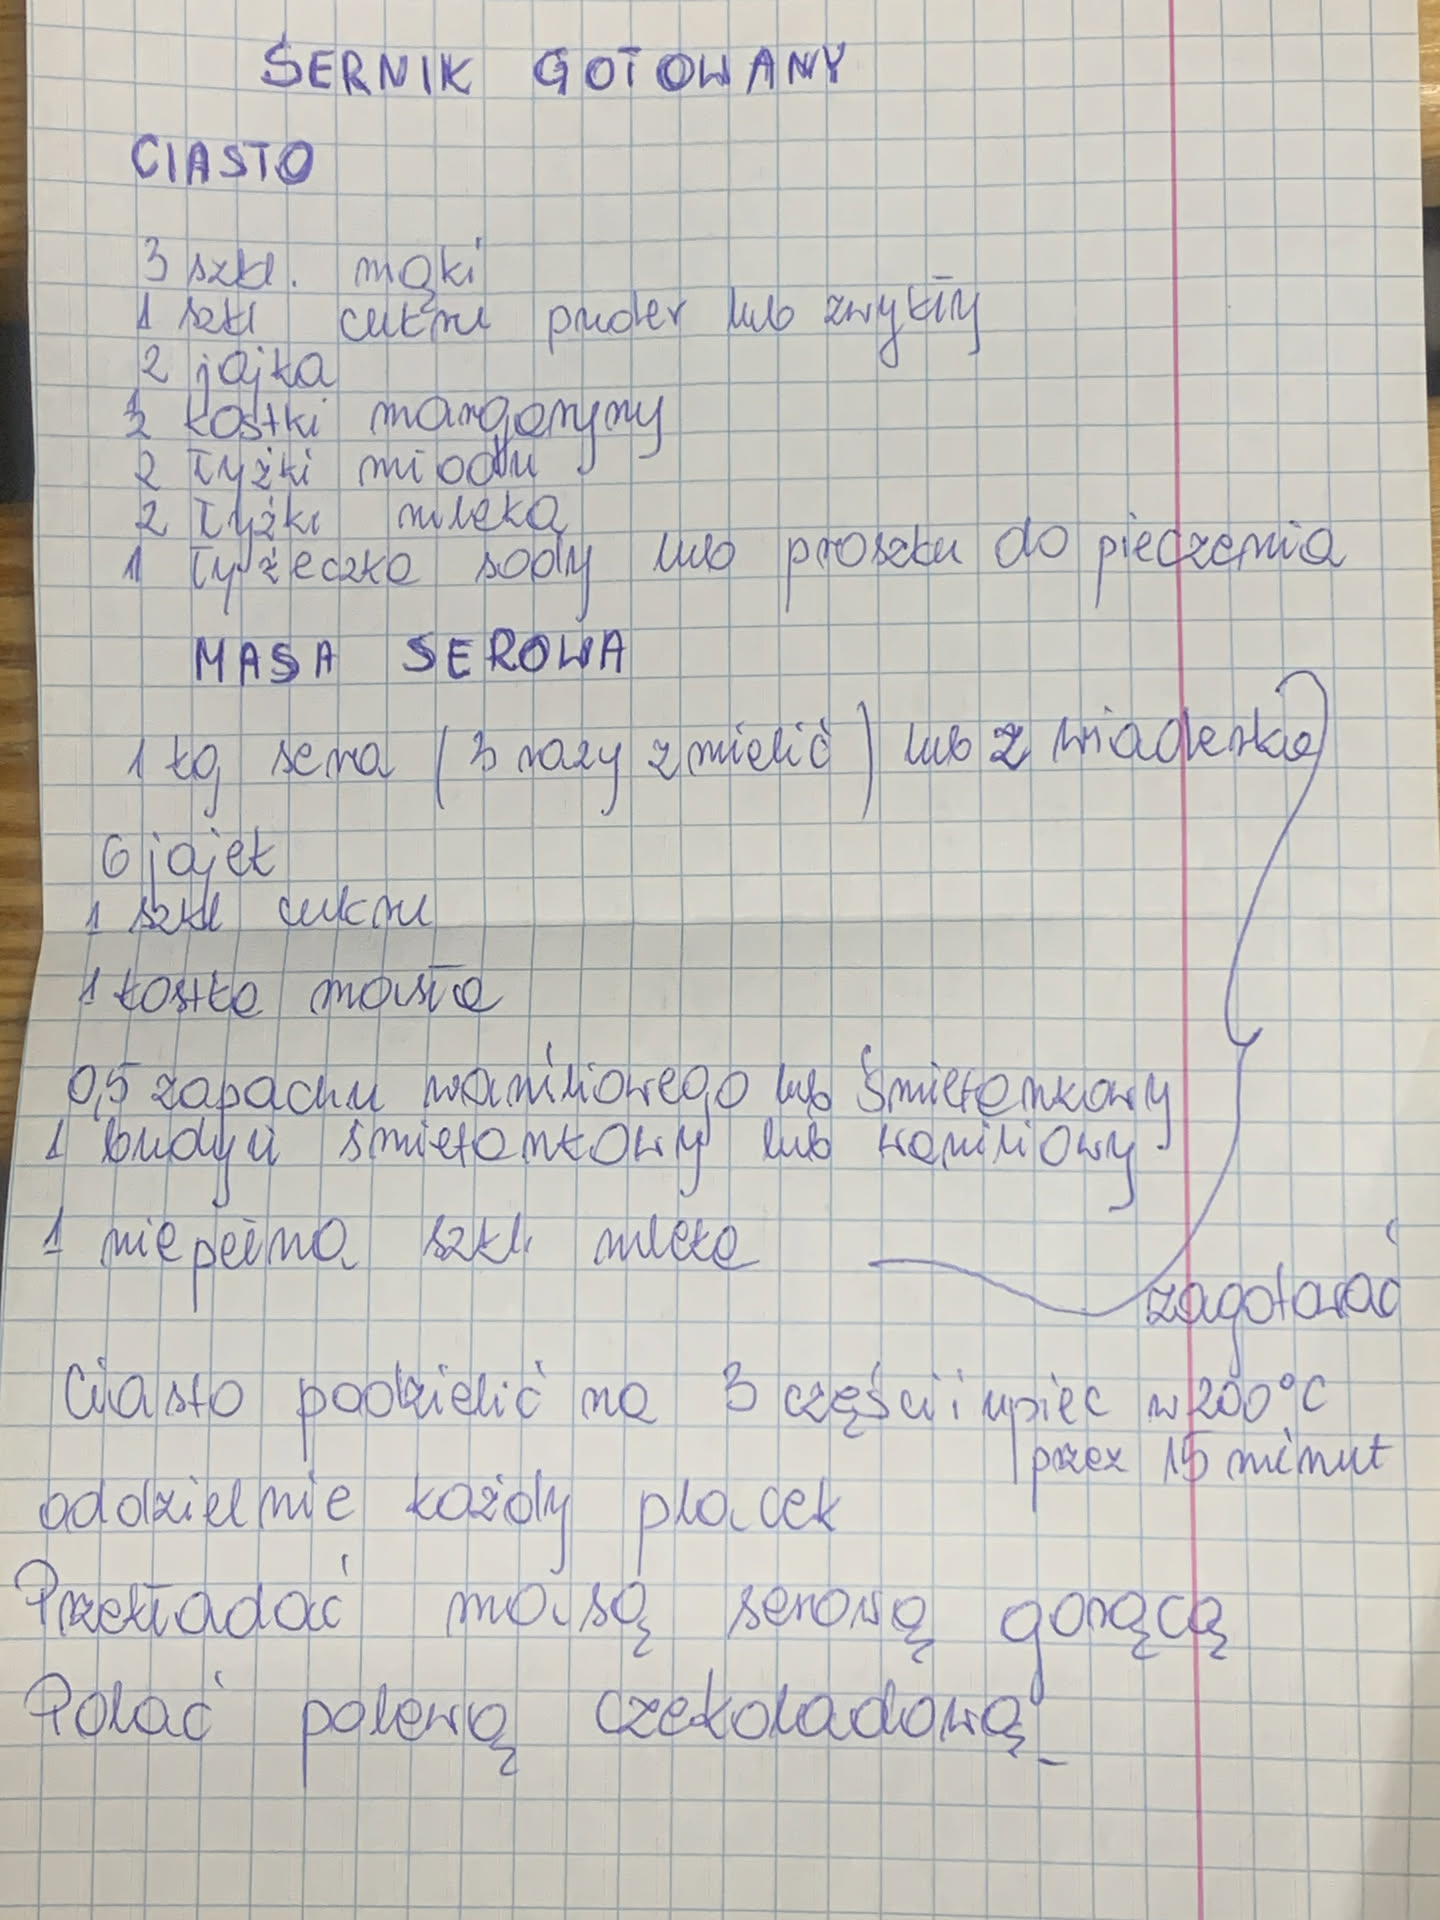 SERNIK GOTOWANY
CIASTO
3 szkl. mąki
1 szkl cukru puder lub zwykły
2 jajka
kostki margaryny
2 łyżki miodu
2 łyżki mleka
1 łyżeczka sody lub proszku do pieczenia
MASA SEROWA
1 kg sera (3 razy zmielić) lub z wiaderka
6 jajek
1 szkl cukru
1 kostka masła
0,5 zapachu waniliowego lub śmietankowy
1 budyń śmietankowy lub waniliowy
1 niepełna szkl. mleka
zagotować
Ciasto podzielić na 3 części i upiec w 200°C
przez 15 minut
oddzielnie każdy placek
Przekładać masą serową gorącą
Polać polewą czekoladową